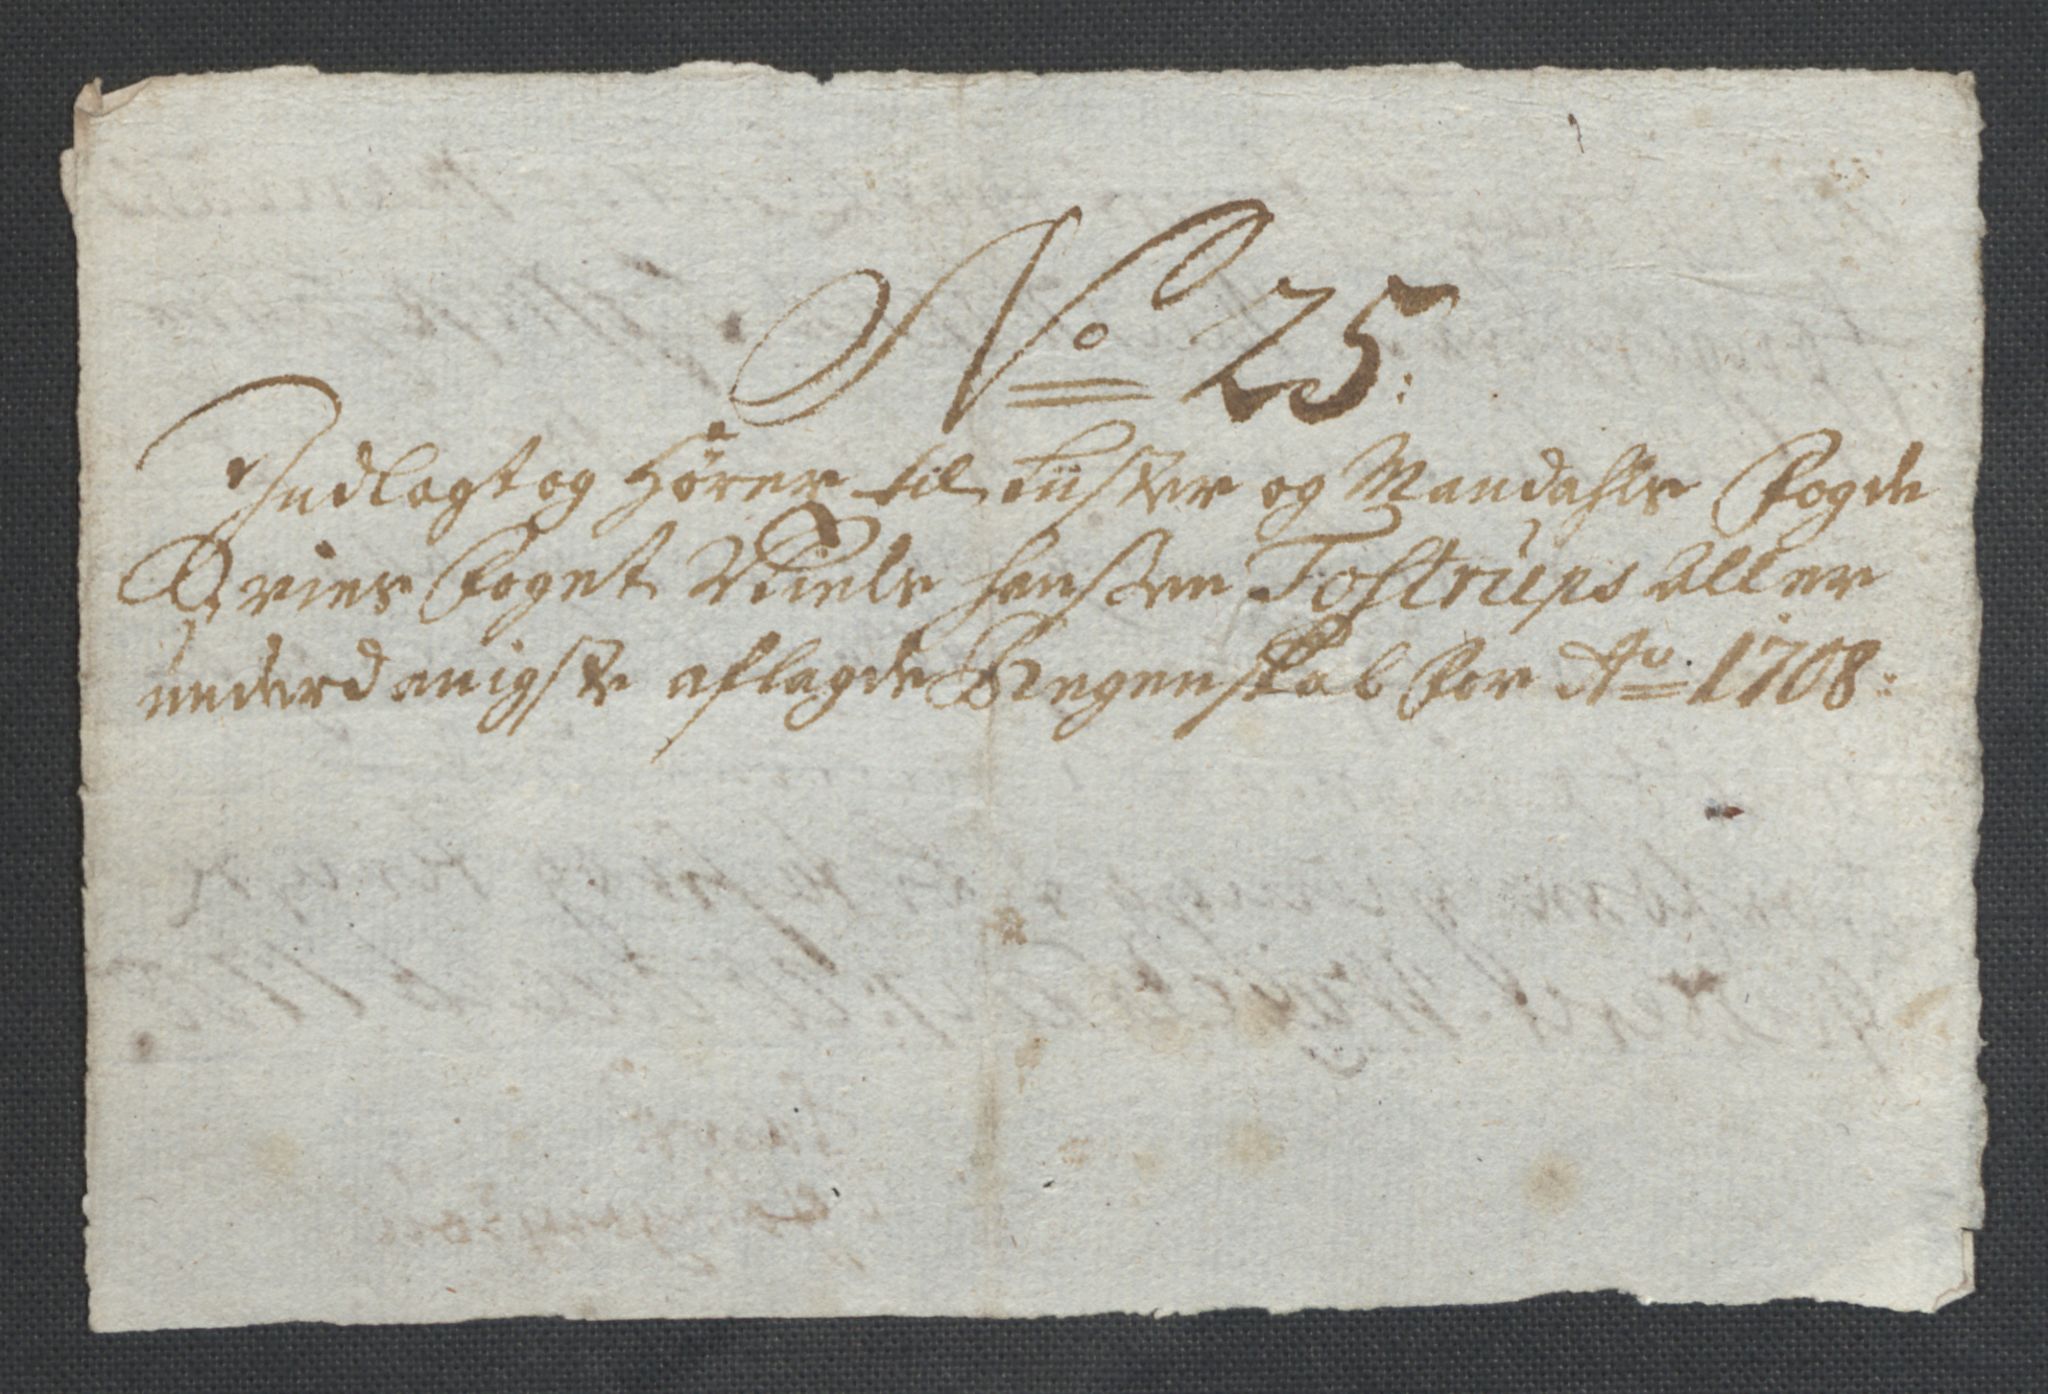 No 25:
Indlagt og Hörer til Lister og Mandahls Fogde
Foget Niels Hanssen Tostrups aller
underdanigste aflagde Regenskab for Ao 1708: